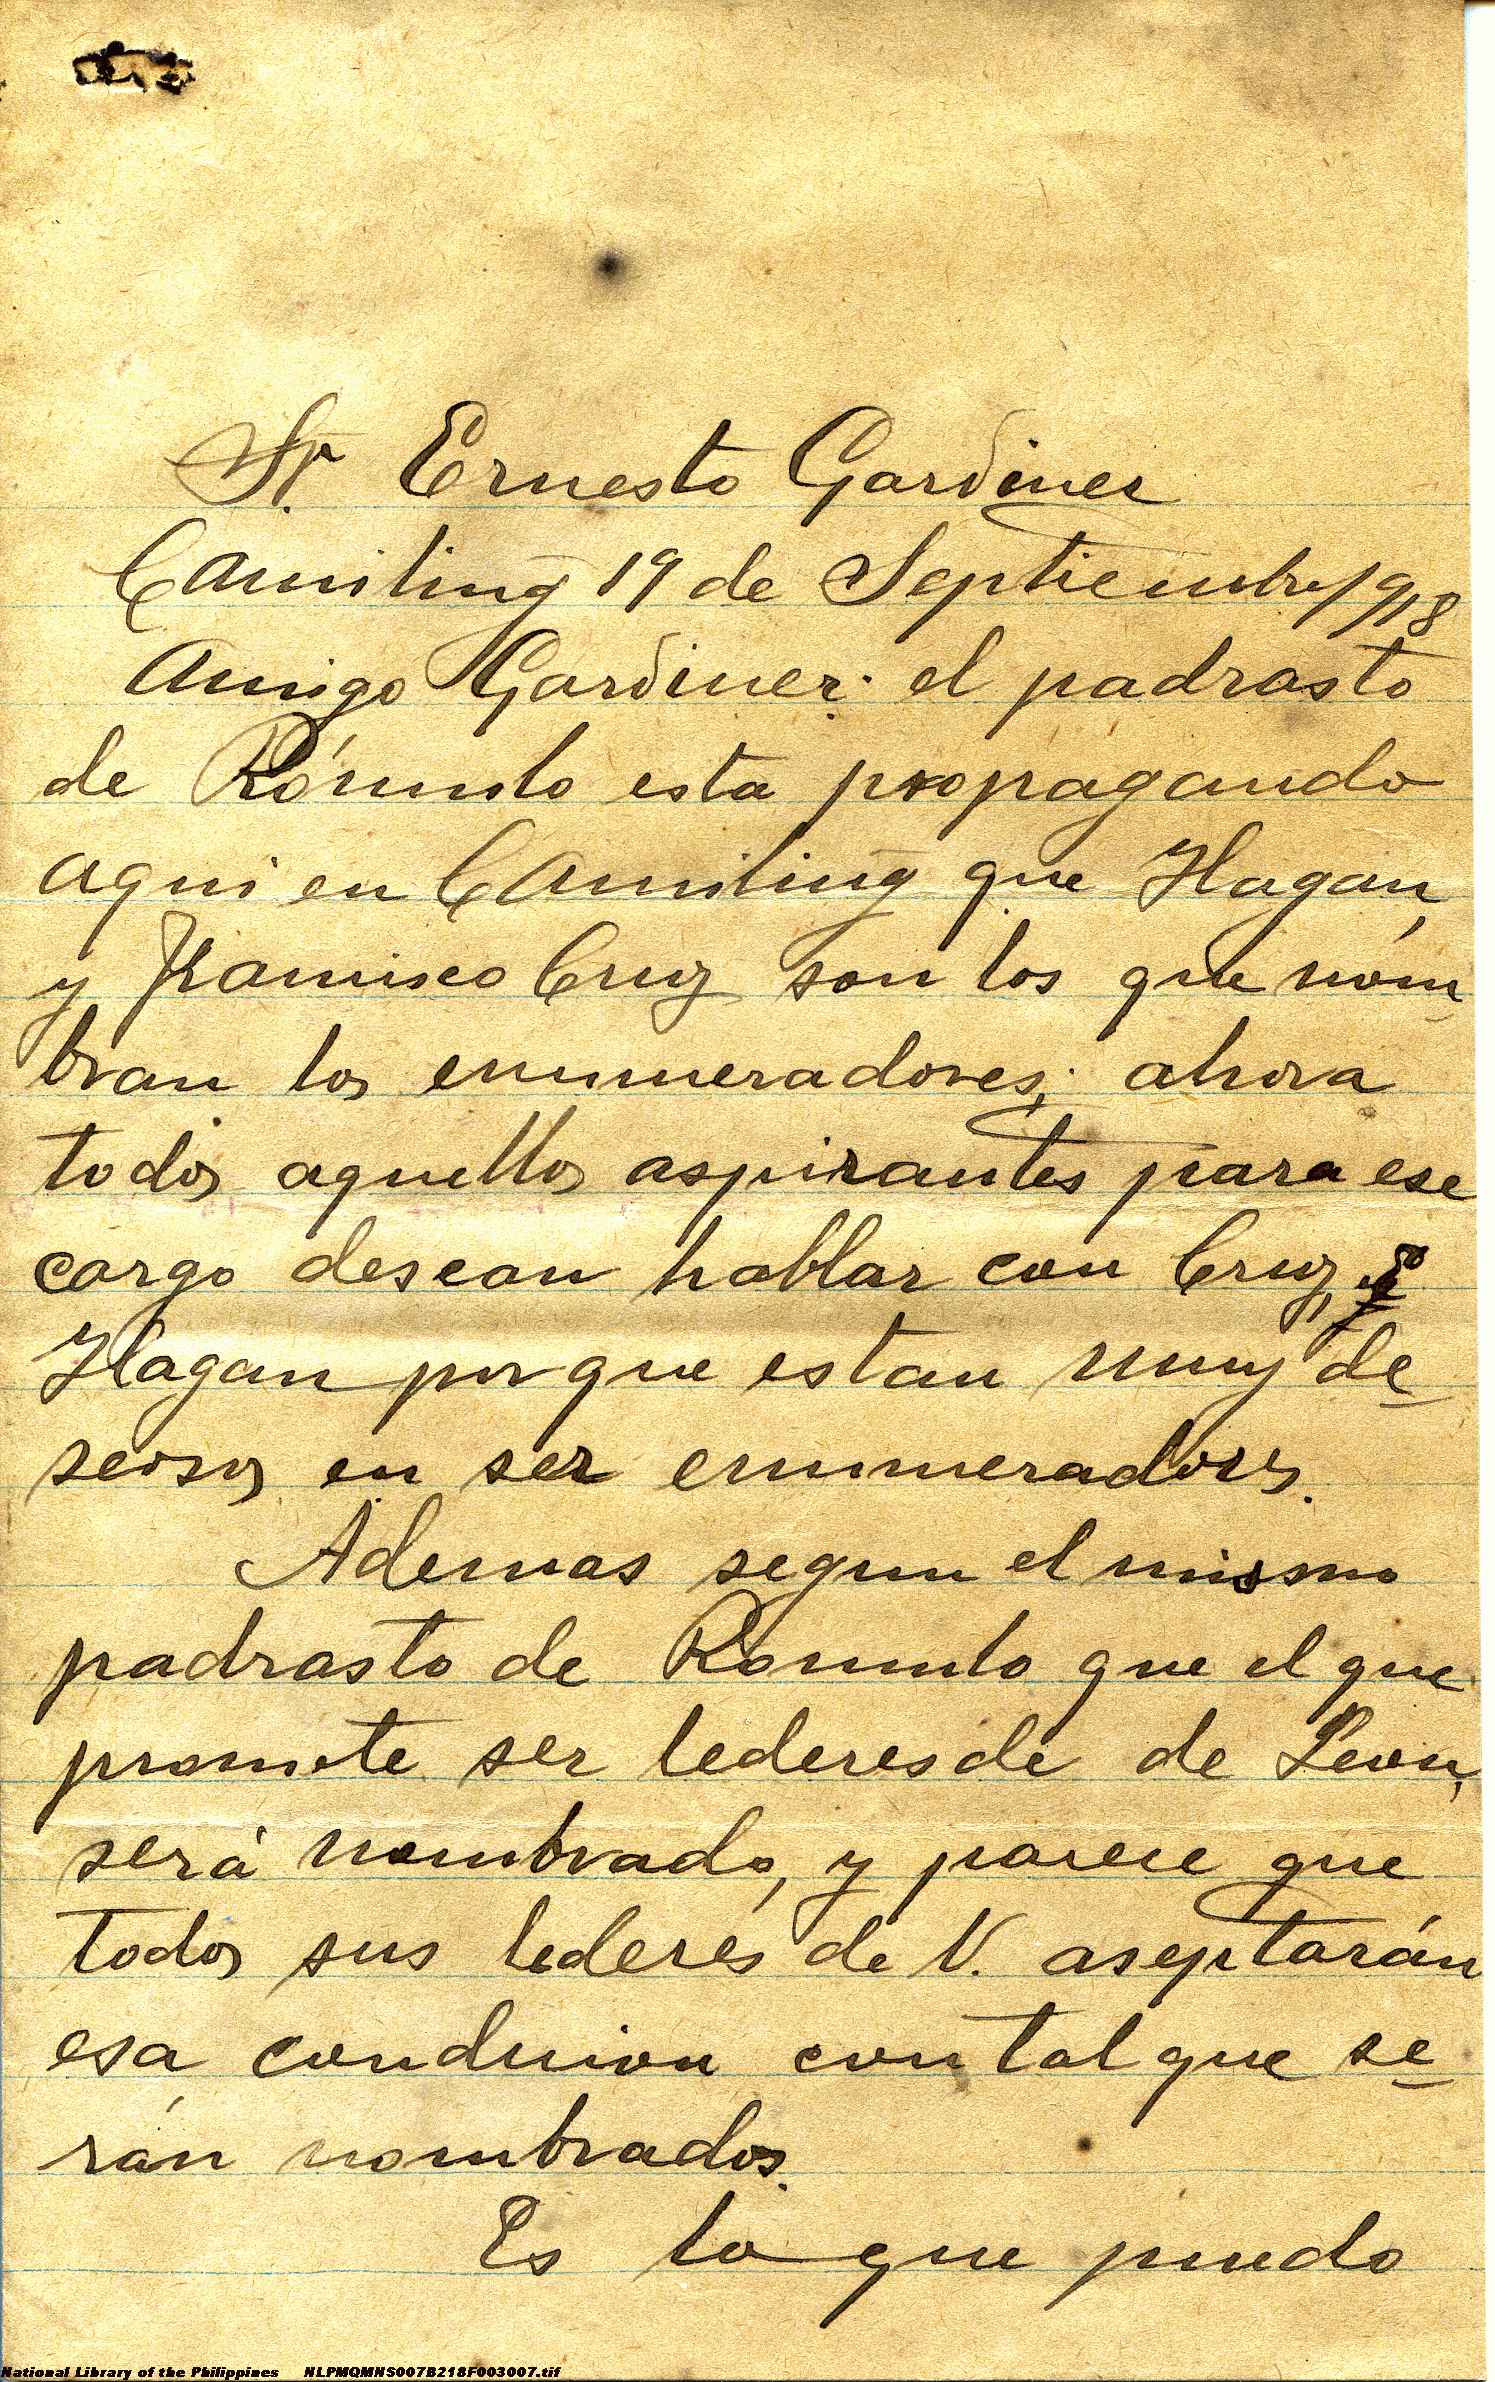 Sr. Ernesto Gardiner
Camiling 19 de Septiembre/918
Amigo Gardiner: el padrasto
de Rómulo esta propagando
aqui en Camiling que Ilagan,
y Francisco Cruz son los que nom-
bran los enumeradores; ahora
todos aquellos aspirantes para ese
cargo desean hablar con Cruz,
Ilagan porque estan muy de-
seosos en ser enumeradores.
Ademas segun el mismo
padrasto de Romulo que el que
promete ser lederes de de Leon,
será nombrado, y parece que
todos sus lederes de V. aseptarán
esa condicion con tal que se-
rán nombrados.
Es lo que puedo
National Library of the Philippines NLPMQMNS007B218F003007.tif